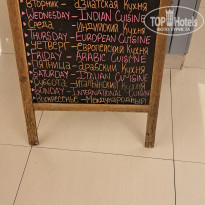 Вторник - азиатская кухня
WEDNESDAY - INDIAN CUISINE
Среда - Индийская кухня
THURSDAY - EUROPEAN CUISINE
ЧЕТВЕРГ - европейская кухня
FRIDAY - ARABIC CUISINE
ПЯТНИЦА - арабский кухня
SATURDAY - ITALIAN CUISINE
Суббота - итальянский кухня
SUNDAY - INTERNATIONAL CUISINE
Воскресенье - Международный
TopHotels